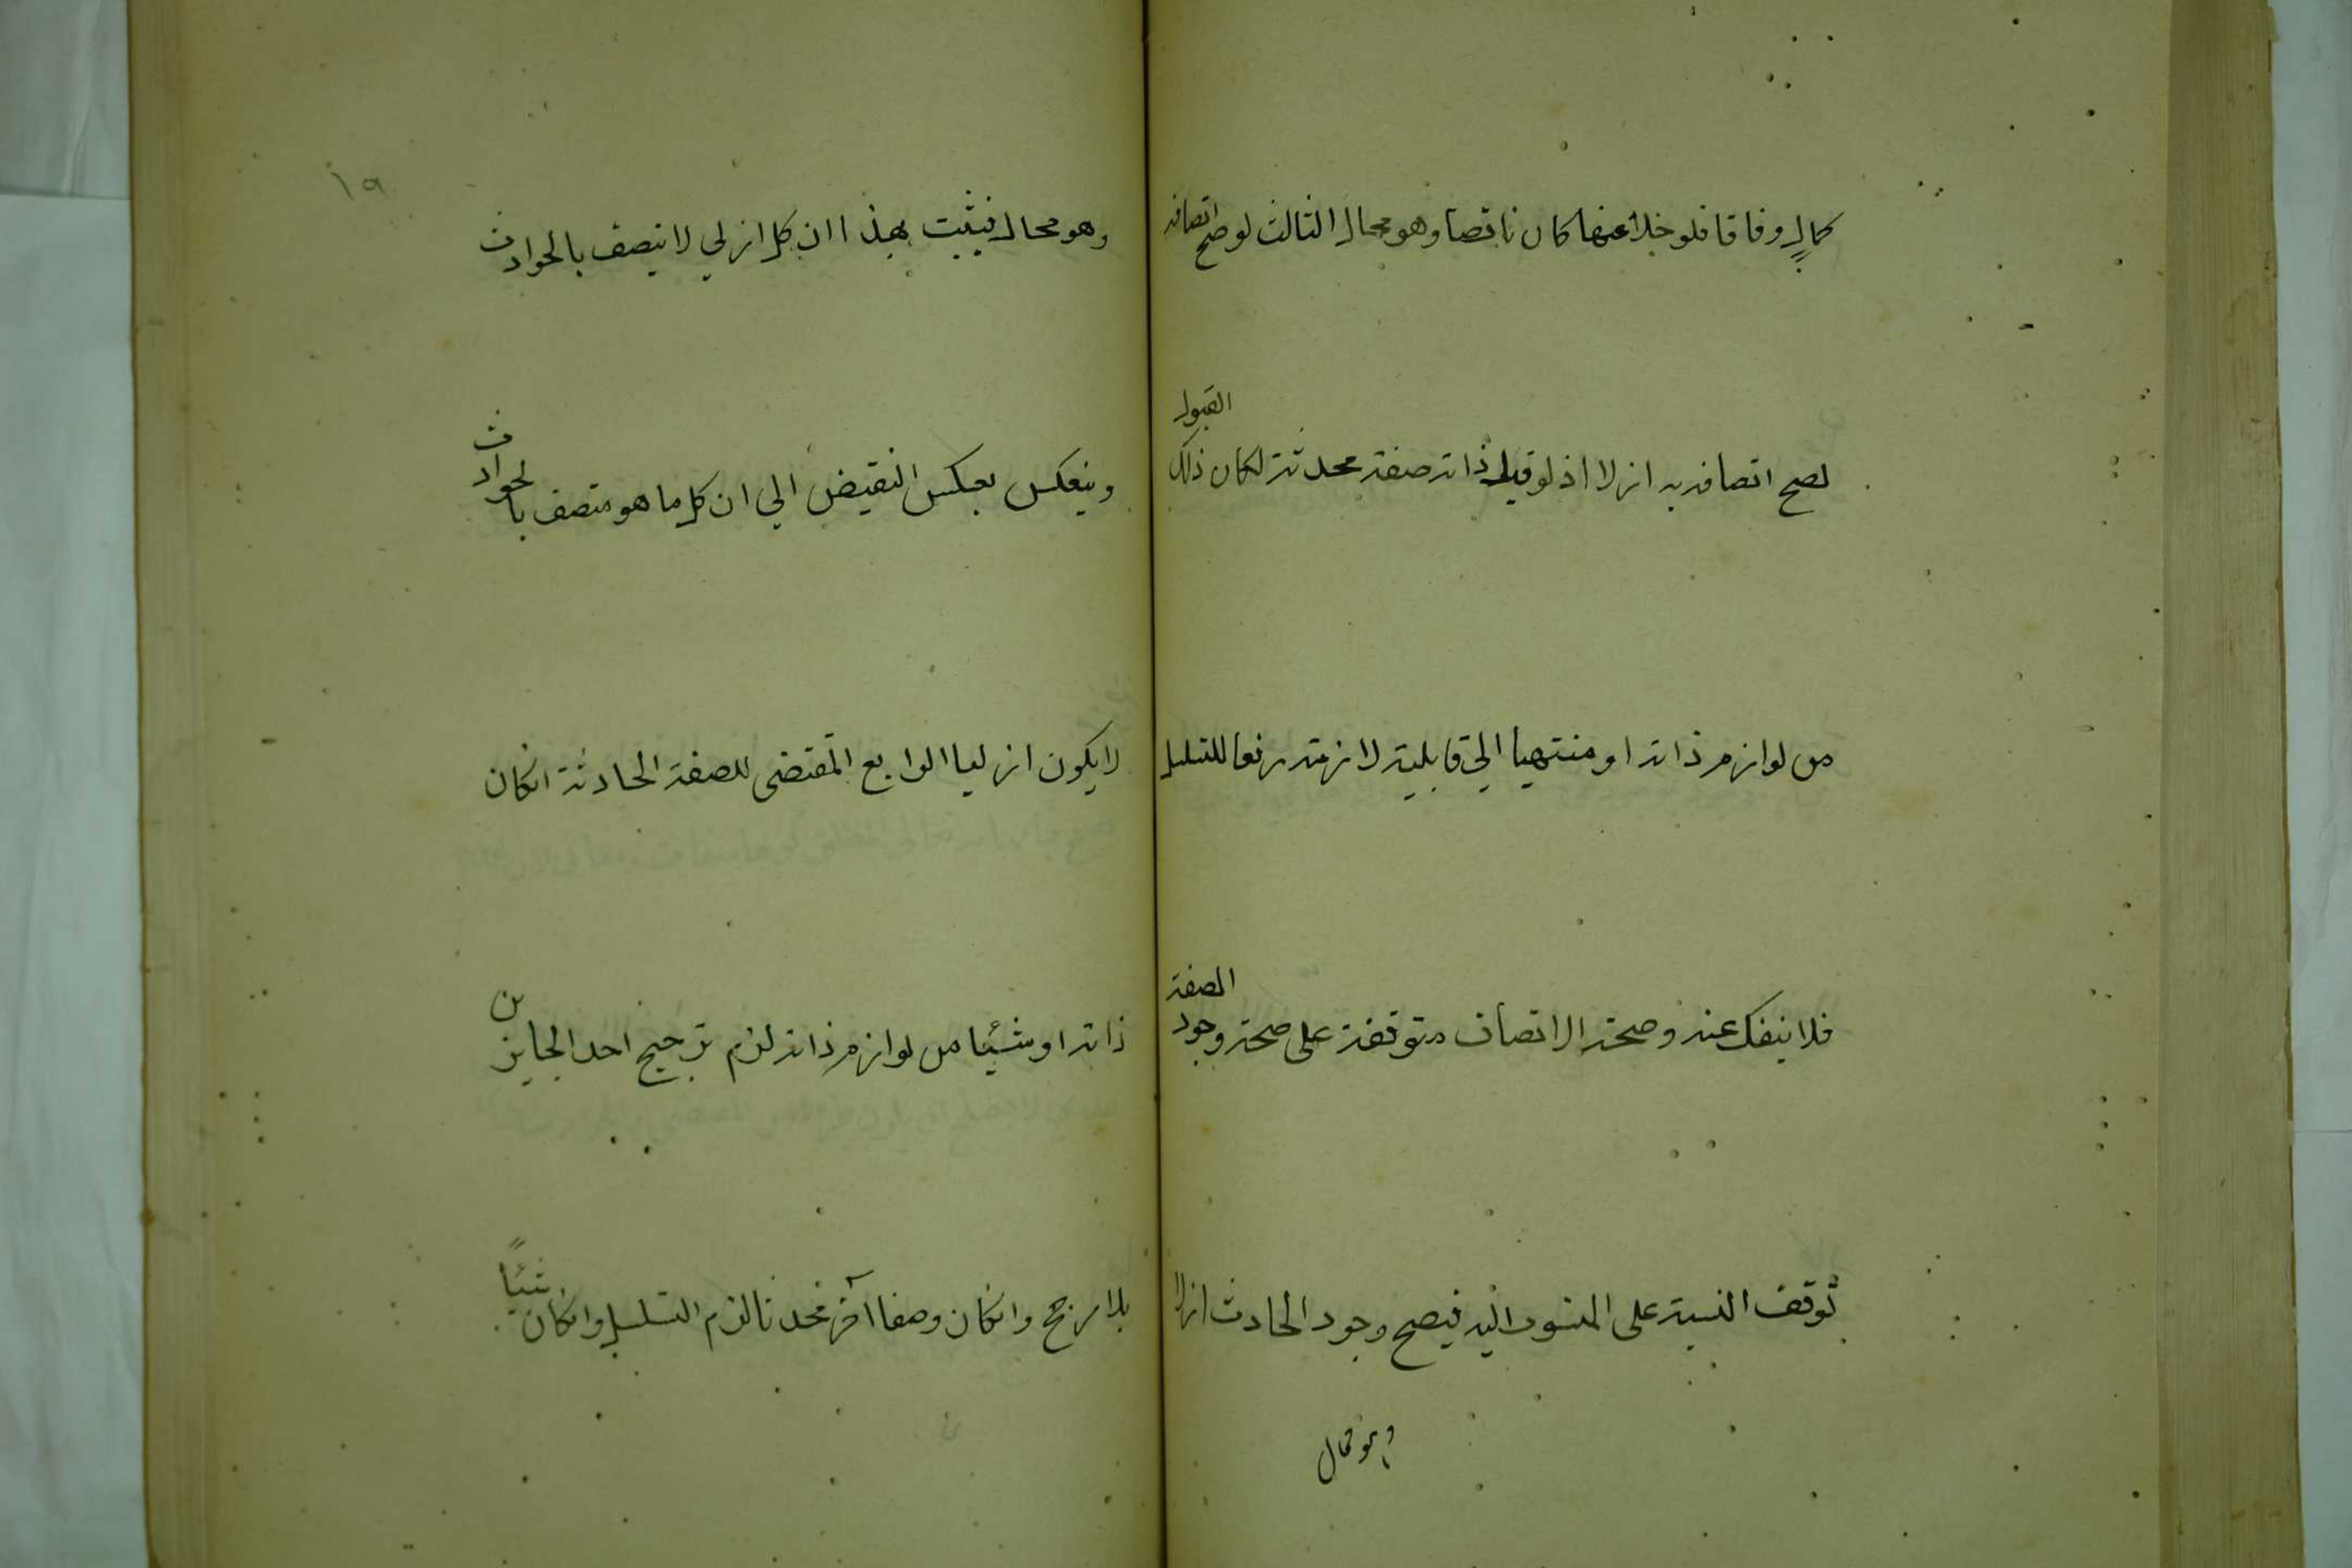 كمالٍ وفاقا فلو خلا عنها كان ناقصا وهو محال الثالث لو صح اتصافه
لصح اتصافه به ازلا اذ لو قبل ذاته صفة محدثة لكان ذلك القبول
من لوازم ذاته او منتهيا الي قابلية لازمة رفعا للتسلسل
فلا ينفك عنه وصحة الاتصاف متوقفة على صحة وجود الصفة
توقف النسبة على المنسوب اليه فيصح وجود الحادث ازلا
وهو محال
١٩
وهو محال فيثبت بهذا ان كل ازلي لا يتصف بالحوادث
وينعكس بعكس النقيض الي ان كل ما هو متصف بالحوادث
لا يكون ازليا الرابع المقتضي للصفة الحادثة انكان
ذاته او شيئا من لوازم ذاته لزم ترجيح احد الجايزين
بلا مرجح وانكان وصفا آخر محدثا لزم التسلسل وانكان شيئًا